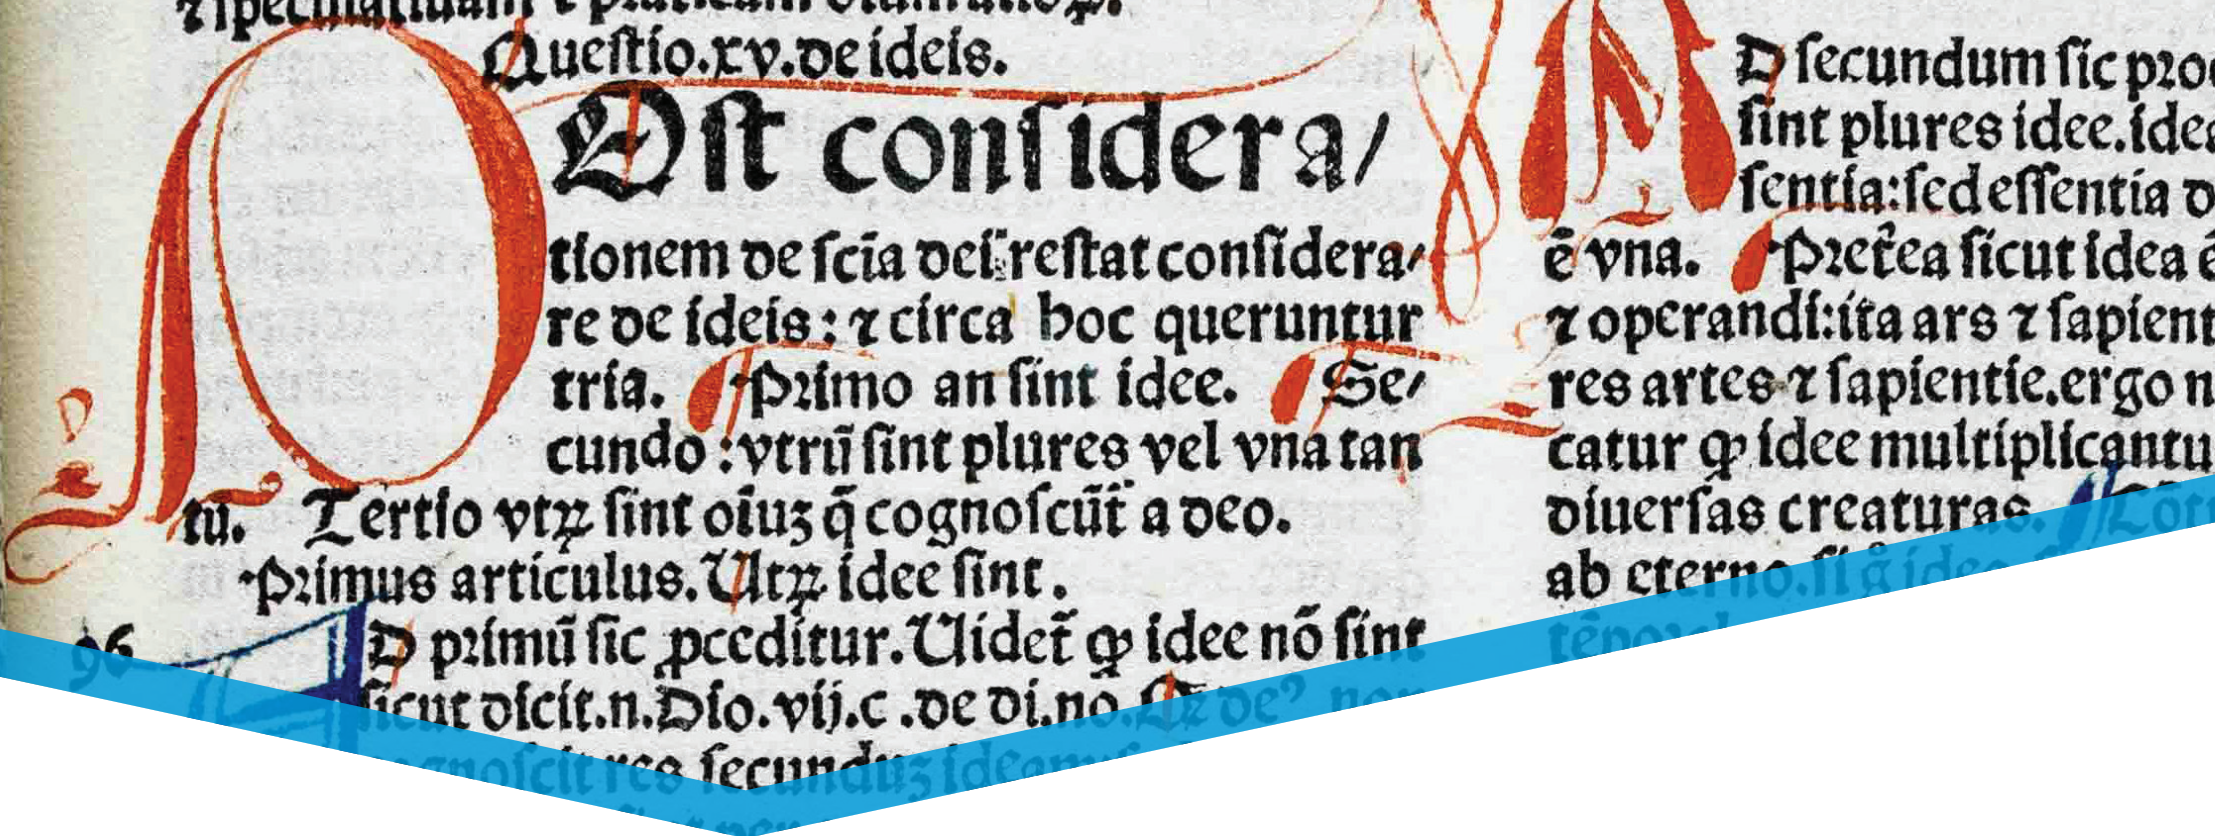 ⁊ speculatiuam ⁊ practicam diuinationꝝ.
Questio.xv.de ideis.
POst considera/
tionem de scia dei restat considera/
re de ideis: ⁊ circa hoc queruntur
tria. Primo an sint idee. Se/
cundo :vtrũ sint plures vel vna tan
tũ. Tertio vtꝝ sint oiuꝫ q̃ cognoscũt a deo.
Primus articulus. Utꝝ idee sint.
96
AD primũ sic ꝓceditur. Uidet̃ ꝙ idee nõ sint
sicut dicit.n.Dio.vij.c .de di.no. de⁹ non
cognoscit res secunduꝫ ideam
AD secundum sic proc
sint plures idee.idea
sentia:sed essentia d
ẽ vna. Pret̃ea sicut idea ẽ
⁊ operandi:ita ars ⁊ sapient
res artes ⁊ sapientie.ergo n
catur ꝙ idee multiplicantu
diuersas creaturas.
ab eterno.si